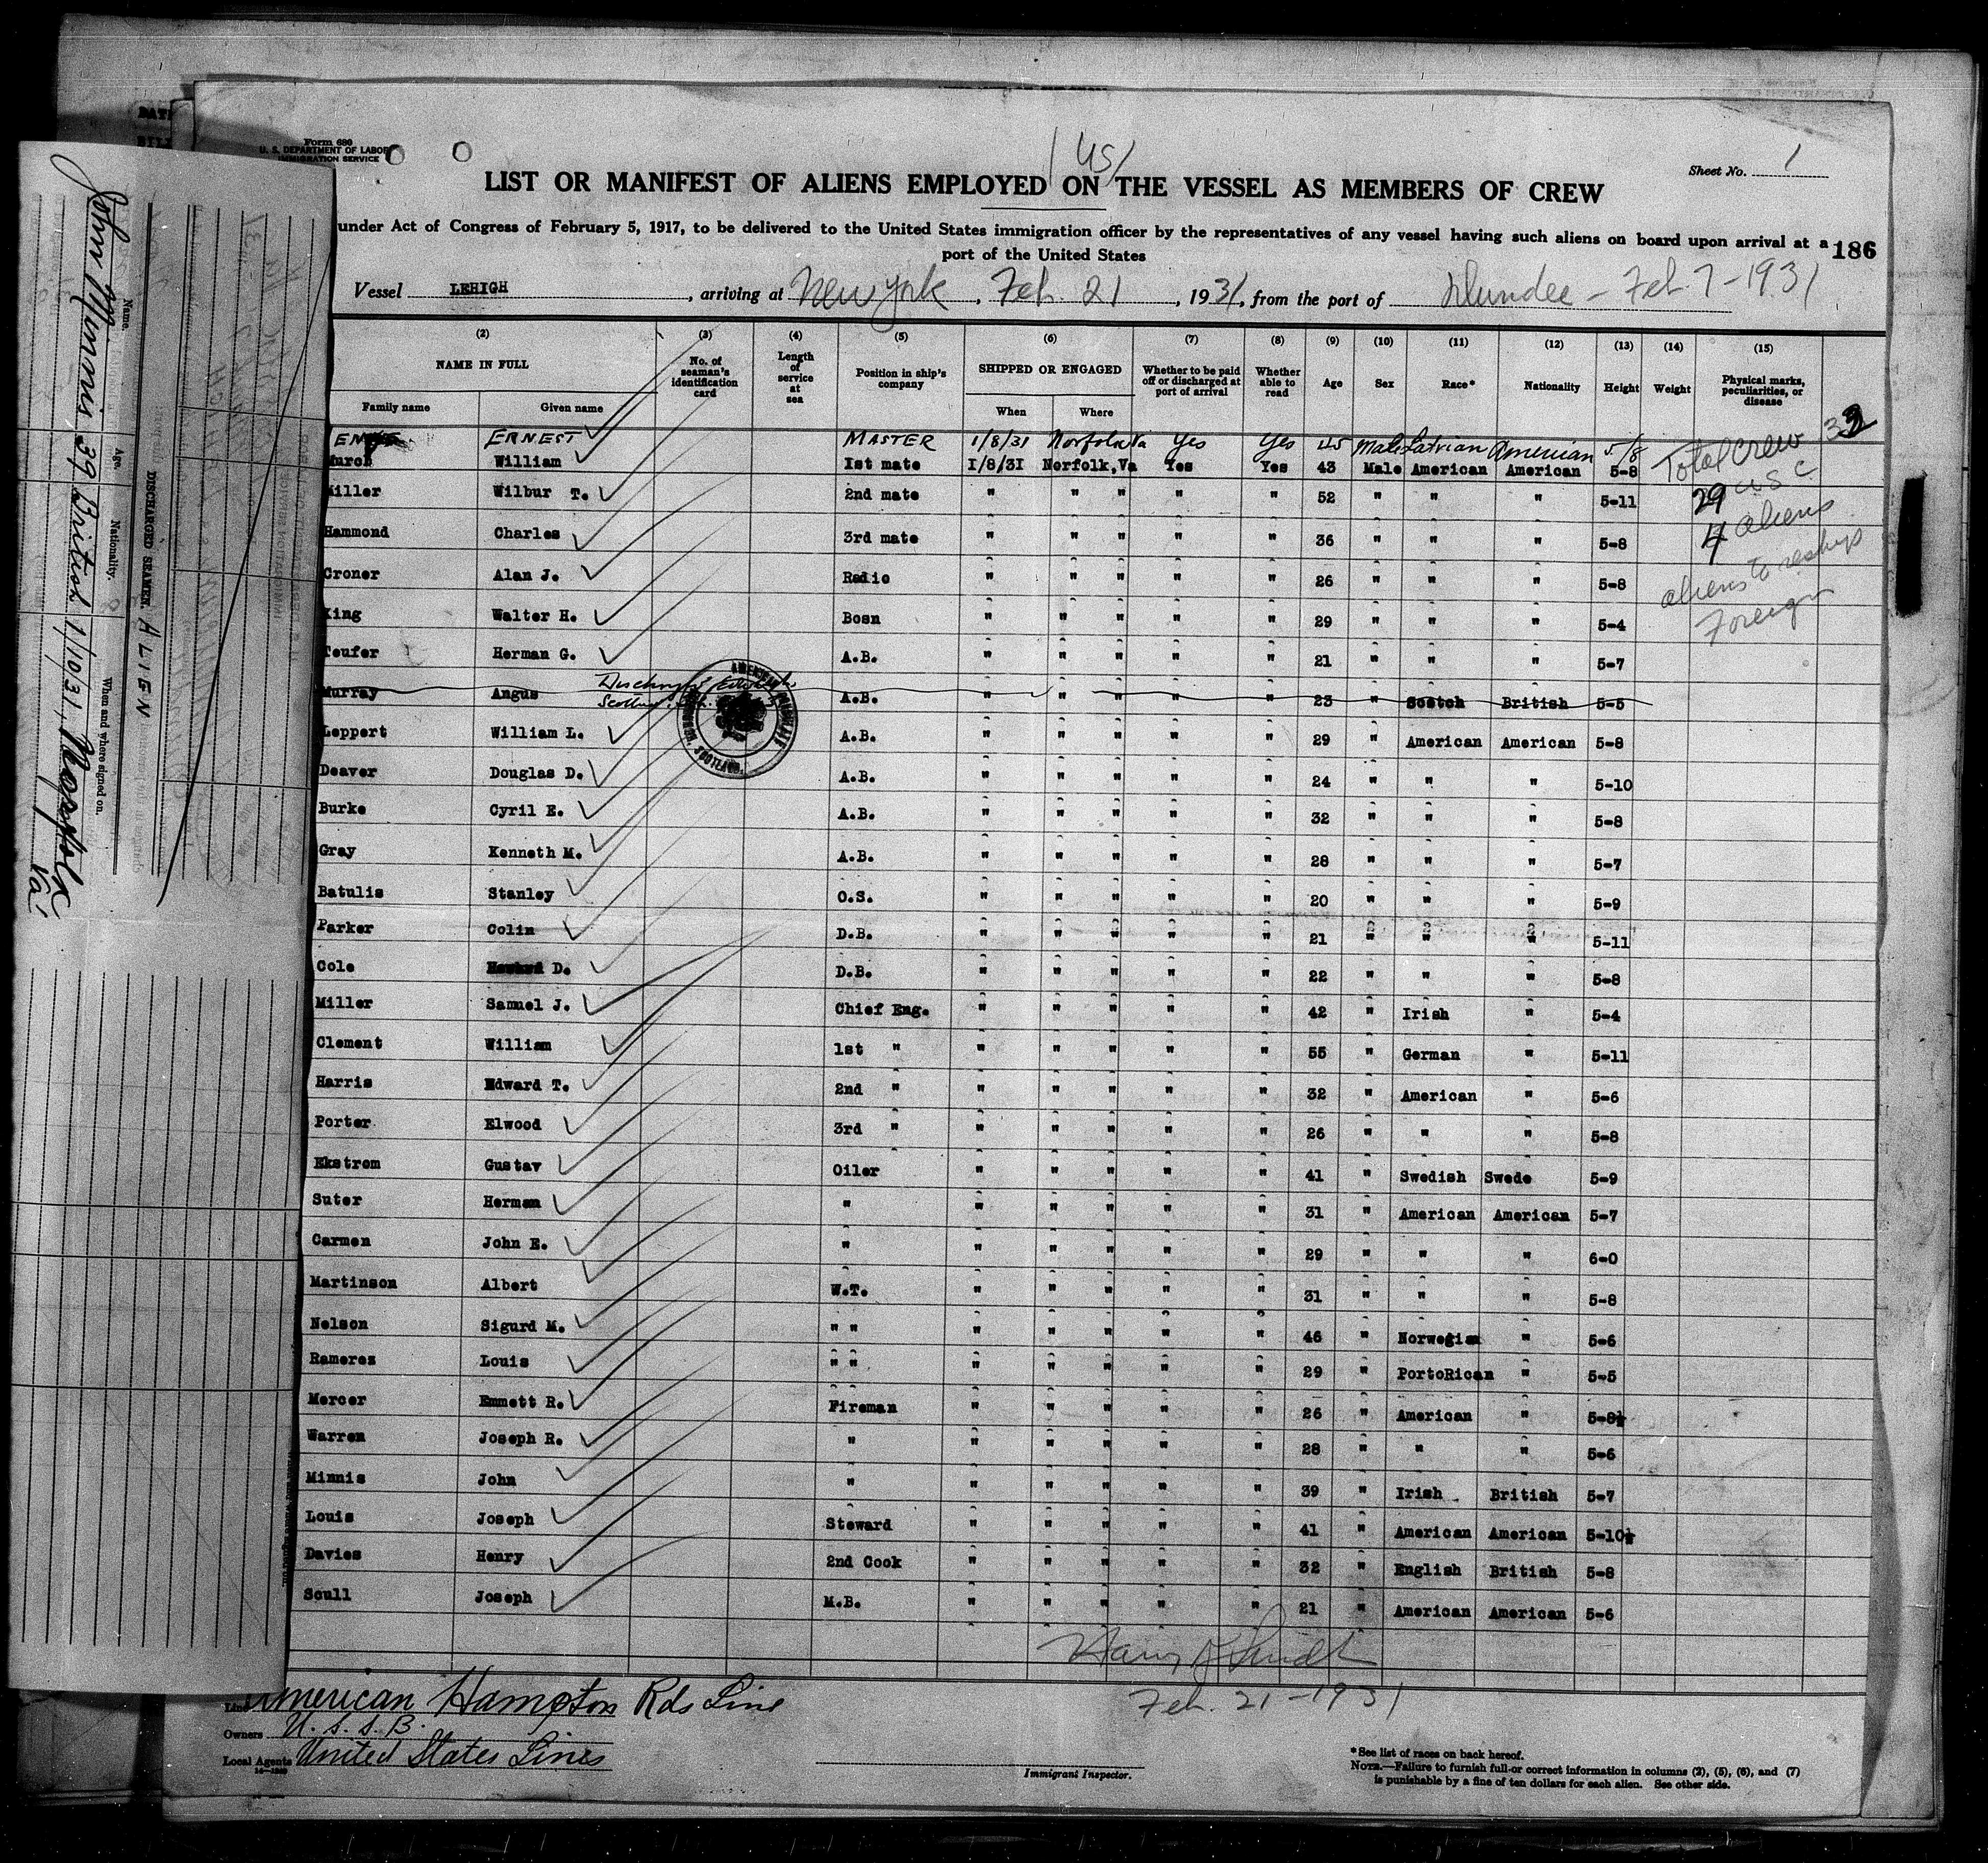 Form 680
U. S. DEPARTMENT OF LABOR
IMMIGRATION SERVICE
US
Sheet No. 1
LIST OR MANIFEST OF ALIENS EMPLOYED ON THE VESSEL AS MEMBERS OF CREW
under Act of Congress of February 5, 1917, to be delivered to the United States immigration officer by the representatives of any vessel having such aliens on board upon arrival at a
port of the United States
186
Vessel LEHIGH, arriving at New York, Feb. 21, 1931, from the port of Dundee - Feb. 7-1931
(2) (3) (4) (5) (6) (7) (8) (9) (10) (11) (12) (13) (14) (15)
NAME IN FULL No. of seaman's identification card Length of service at sea Position in ship's company SHIPPED OR ENGAGED Whether to be paid off or discharged at port of arrival Whether able to read Age Sex Race* Nationality Height Weight Physical marks, peculiarities, or disease
Family name Given name When Where
ERNEST MASTER 1/8/31 Norfolk Va Yes Yes 45 Male Latvian American 5/8
William 1st mate 1/8/31 Norfolk, Va Yes Yes 43 Male American American 5-8
iller Wilbur T. 2nd mate " " " " " 52 " " " 5-11
Hammond Charles 3rd mate " " " " " 36 " " " 5-8
Croner Alan J. Radio " " " " " 26 " " " 5-8
King Walter H. Bosn " " " " " 29 " " " 5-4
Teufer Herman G. A.B. " " " " " 21 " " " 5-7
Murray Angus A.B. " " " " " 23 " Scotch British 5-5
Leppert William L. A.B. " " " " " 29 " American American 5-8
Deaver Douglas D. A.B. " " " " " 24 " " " 5-10
Burke Cyril E. A.B. " " " " " 32 " " " 5-8
Gray Kenneth M. A.B. " " " " " 28 " " " 5-7
Batulis Stanley O.S. " " " " " 20 " " " 5-9
Parker Colin D.B. " " " " " 21 " " " 5-11
Cole D. D.B. " " " " " 22 " " " 5-8
Miller Samuel J. Chief Eng. " " " " " 42 " Irish " 5-4
Clement William 1st " " " " " " 55 " German " 5-11
Harris Edward T. 2nd " " " " " " 32 " American " 5-6
Porter Elwood 3rd " " " " " " 26 " " " 5-8
Ekstrom Gustav Oiler " " " " " 41 " Swedish Swede 5-9
Suter Herman " " " " " " 31 " American American 5-7
Carmen John E. " " " " " " 29 " " " 6-0
Martinson Albert W.T. " " " " " 31 " " " 5-8
Nelson Sigurd M. " " " " " " " 46 " Norwegian " 5-6
Ramerez Louis " " " " " " " 29 " PortoRican " 5-5
Mercer Emmett R. Fireman " " " " " 26 " American " 5-8½
Warren Joseph R. " " " " " " 28 " " " 5-6
Minnis John " " " " " " 39 " Irish British 5-7
Louis Joseph Steward " " " " " 41 " American American 5-10½
Davies Henry 2nd Cook " " " " " 32 " English British 5-8
Scull Joseph M.B. " " " " " 21 " American American 5-6
Total Crew 33
29 U S C
4 aliens
aliens to reship
Foreign
Feb. 21-1931
Line American Hampton Rds Line
Owners U. S. S. B.
Local Agents United States Lines
Immigrant Inspector.
* See list of races on back hereof.
NOTE.—Failure to furnish full or correct information in columns (2), (5), (6), and (7)
is punishable by a fine of ten dollars for each alien. See other side.
DISCHARGED SEAMEN. ALIEN
Name. Age. Nationality. When and where signed on.
John Minnis 39 British 1/10/31, Norfolk Va.